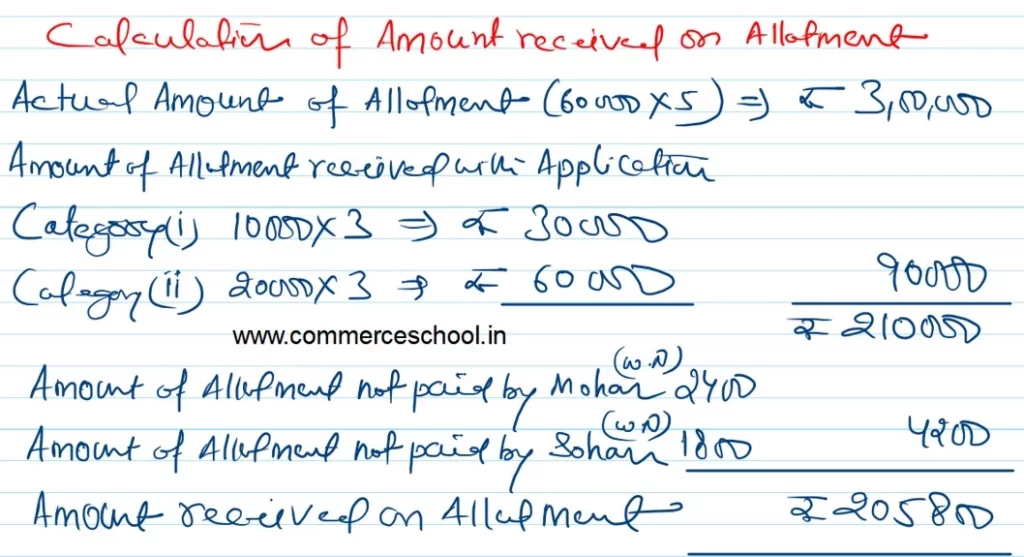 Calculation of Amount received on Allotment
Actual Amount of Allotment (60000×5) ⇒ ₹ 3,00,000
Amount of Allotment received with Application
Category(i) 10000×3 ⇒ ₹ 30000
Category(ii) 20000×3 ⇒ ₹ 60000 90000
₹ 210000
www.commerceschool.in
(W.N)
Amount of Allotment not paid by Mohan 2400
(W.N)
Amount of Allotment not paid by Sohan 1800 4200
Amount received on Allotment ₹ 205800